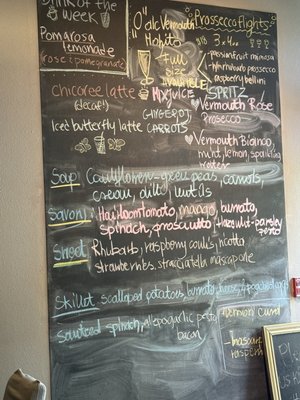 Drink of the
week
Pomarosa
lemonade
rose & pomegranate
Chicoree latte
(decaf!)
Iced butterfly latte
"O"dly Vermouth
Mojito
Full
Size
AVAILABLE
MIX JUICE
GINGER
CARROTS
Prosecco flights
3 x 4oz
passionfruit mimosa
prosecco
raspberry bellini
SPRITZ
Vermouth Rose
Prosecco
Vermouth Bianco,
mint, lemon, sparkling
water
Soup Cauliflower, green peas, carrots,
cream, dill, lentils
Savory: Heirloom tomato, mango, burrata,
spinach, prosciutto, hazelnut-parsley
pesto
Sweet: Rhubarb, raspberry coulis, ricotta
strawberries, stracciatella mascarpone
Skillet scalloped potatoes, burrato, poached eggs
Sauteed spinach, garlic pesto
bacon
Lemon curd